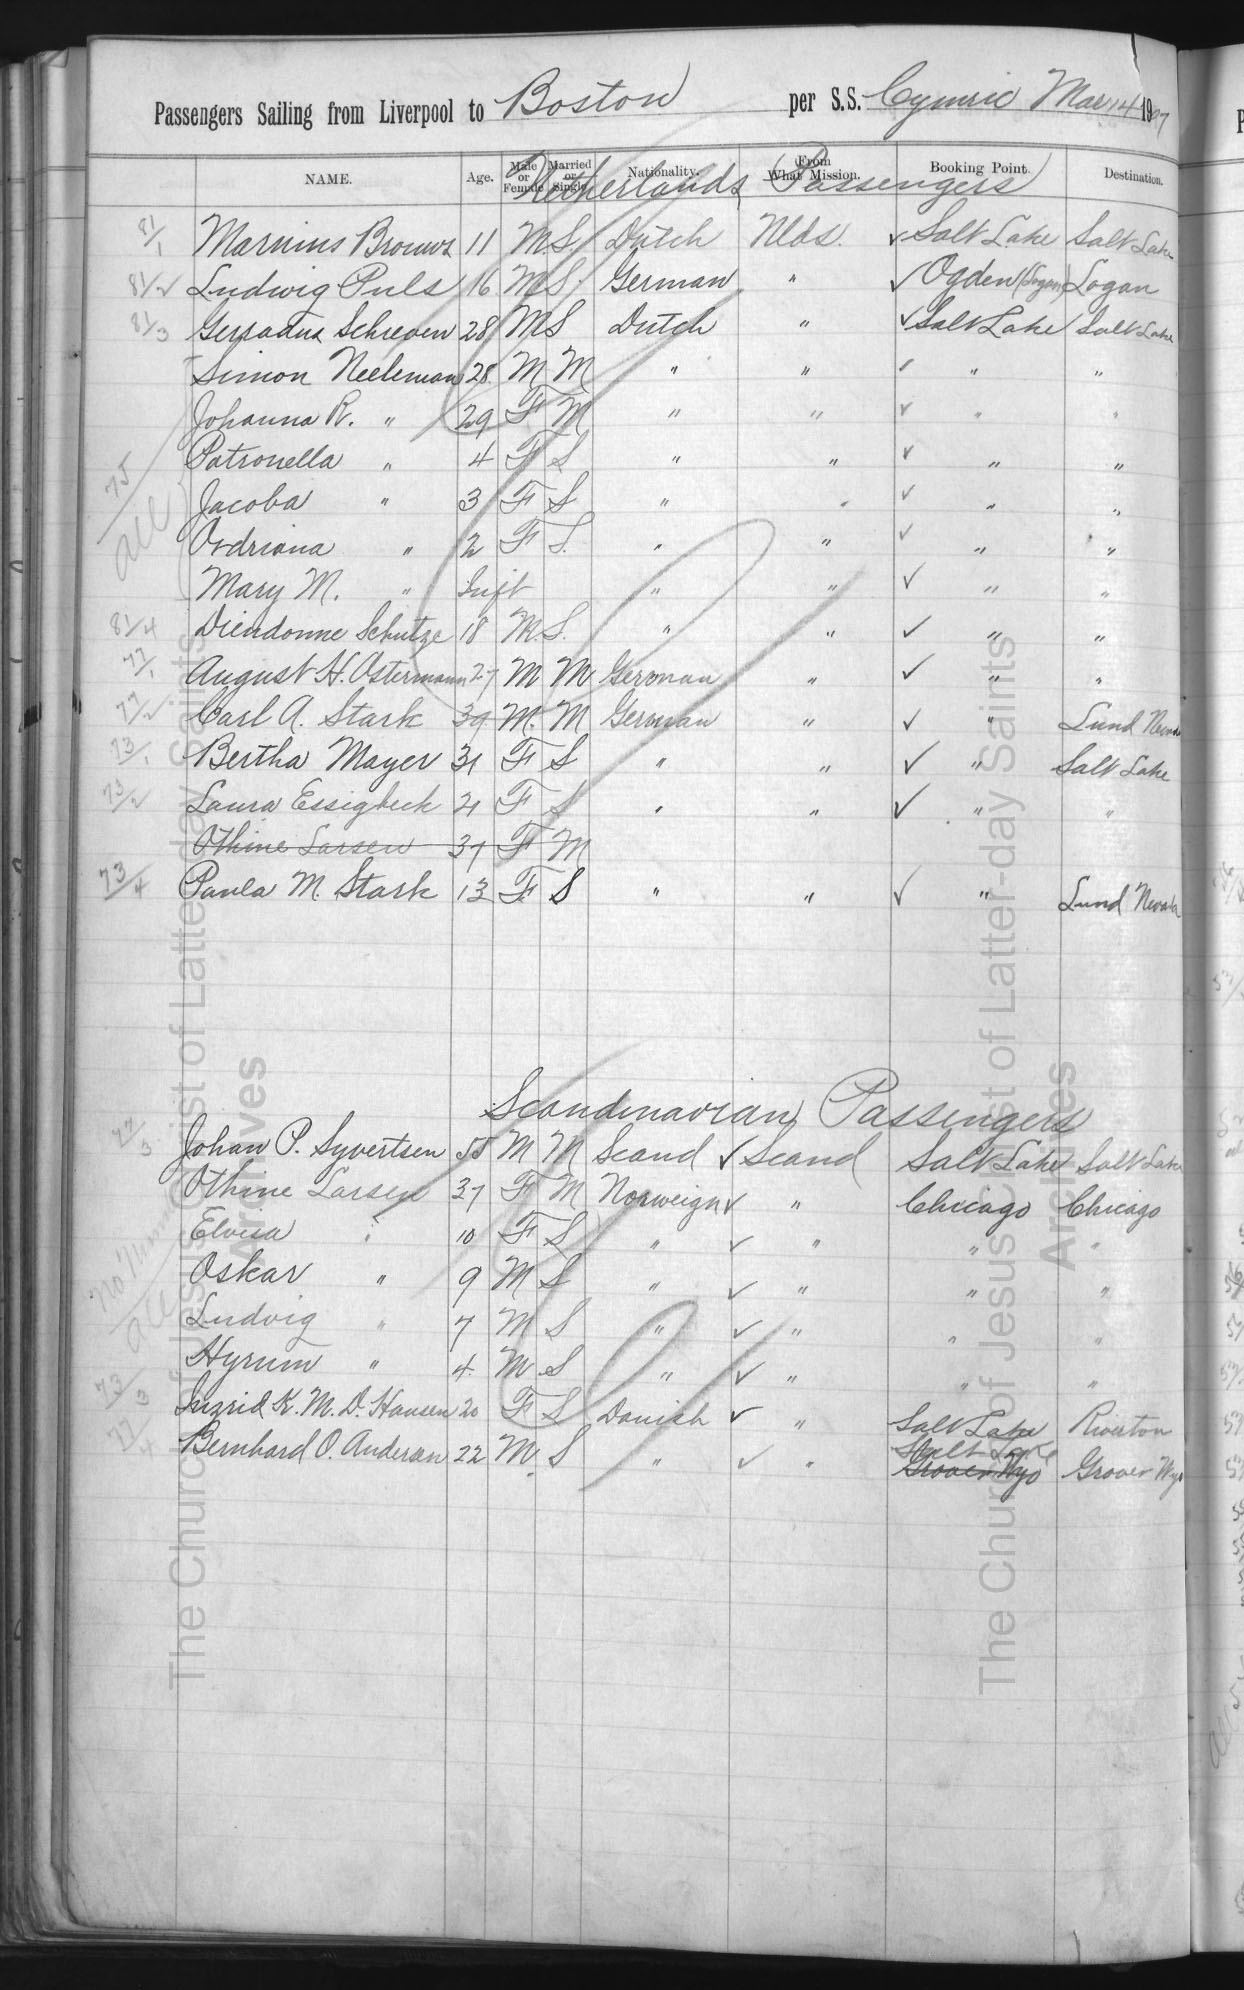 Passengers Sailing from Liverpool to Boston per S.S. Cymric Mar 14 1907
NAME. Age. Male or Female Married or Single. Nationality. From What Mission. Booking Point. Destination.
Netherlands Passengers
81/1 Marinus Brouws 11 M S. Dutch Nlds. ✓ Salt Lake Salt Lake
81/2 Ludwig Puls 16 M S German " ✓ Ogden (Logan) Logan
81/3 Gerradus Schreven 28 M S Dutch " ✓ Salt Lake Salt Lake
Simon Neeleman 28 M M " " ✓ " "
Johanna R. " 29 F M " " ✓ " "
75 Patronella " 4 F S " " ✓ " "
all Jacoba " 3 F S " " ✓ " "
Ardriana " 2 F S. " " ✓ " "
Mary M. " Inft " " ✓ " "
81/4 Diendonne Schutze 18 M. S. " " ✓ " "
77/1 August H. Ostermann 27 M M German " ✓ " "
77/2 Carl A. Stark 39 M. M German " ✓ " Lund Nevada
73/1 Bertha Mayer 31 F S " " ✓ " Salt Lake
73/2 Laura Essigbeck 21 F S " " ✓ " "
Othine Larsen 37 F M
73/4 Paula M. Stark 13 F. S " " ✓ " Lund Nevada
Scandinavian Passengers
77/3 Johan P. Syvertsen 55 M M Scand ✓ Scand Salt Lake Salt Lake
Othine Larsen 37 F M Norweign ✓ " Chicago Chicago
Elvisa " 10 F S " ✓ " " "
no Oskar " 9 M S " ✓ " " "
all Ludvig " 7 M S " ✓ " " "
Hyrum " 4 M S " ✓ " " "
73/3 Ingrid K. M. D. Hansen 20 F S Danish ✓ " Salt Lake Riverton
77/4 Bernhard O. Andersen 22 M S " ✓ " Salt Lake Grover Wyo Grover Wyo
The Church of Jesus Christ of Latter-day Saints
Archives
The Church of Jesus Christ of Latter-day Saints
Archives